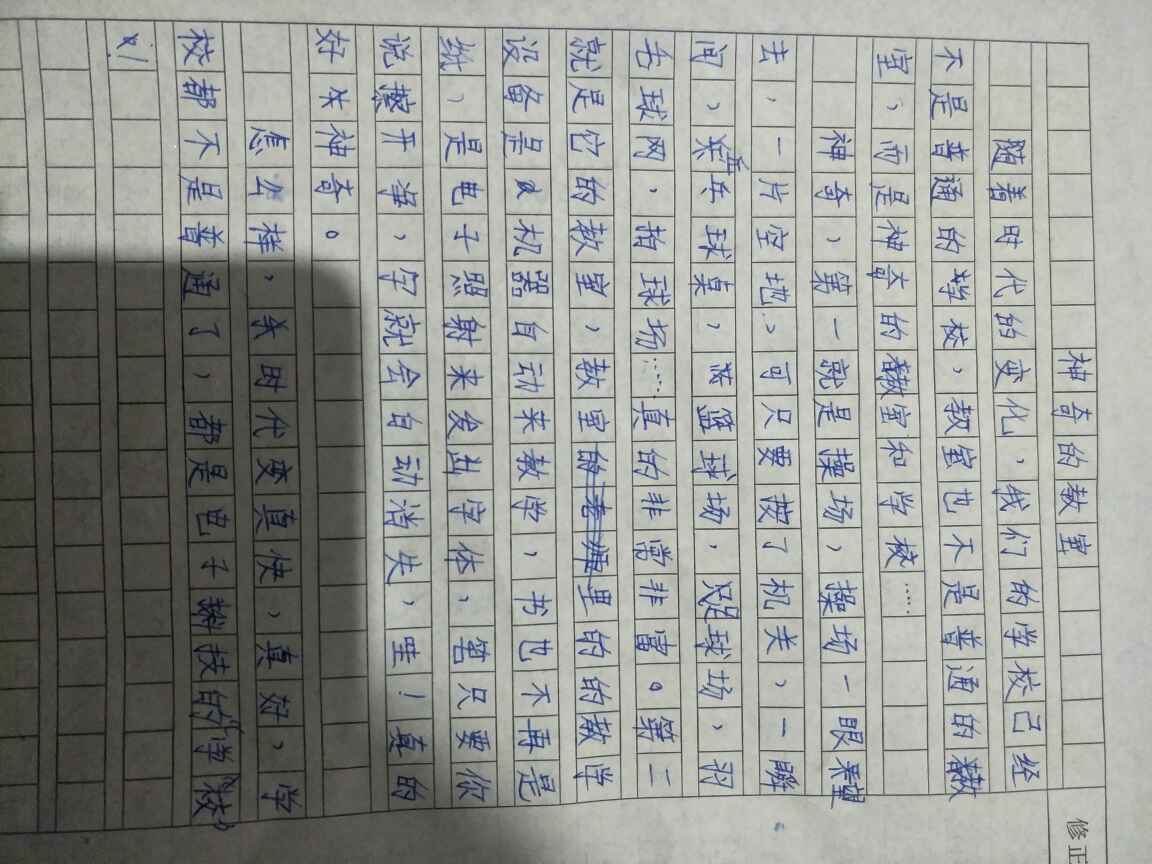 神奇的教室
随着时代的变化，我们的学校已经
不是普通的学校，教室也不是普通的教
室，而是神奇的教室和学校……
神奇，第一就是操场，操场一眼望
去，一片空地，可只要按了机关，一瞬
间，乒乓球桌，篮球场，足球场，羽
毛球网，拍球场……真的非常非常。第二
就是它的教室，教室里的的教学
设备是机器自动来教学，书也不再是
纸，是电子照射来发出字体，笔只要你
说擦干净，字就会自动消失，哇！真的
好神奇。
怎么样，时代变真快，真好，学
校都不是普通了，都是电子科技的“学校”
！
修正